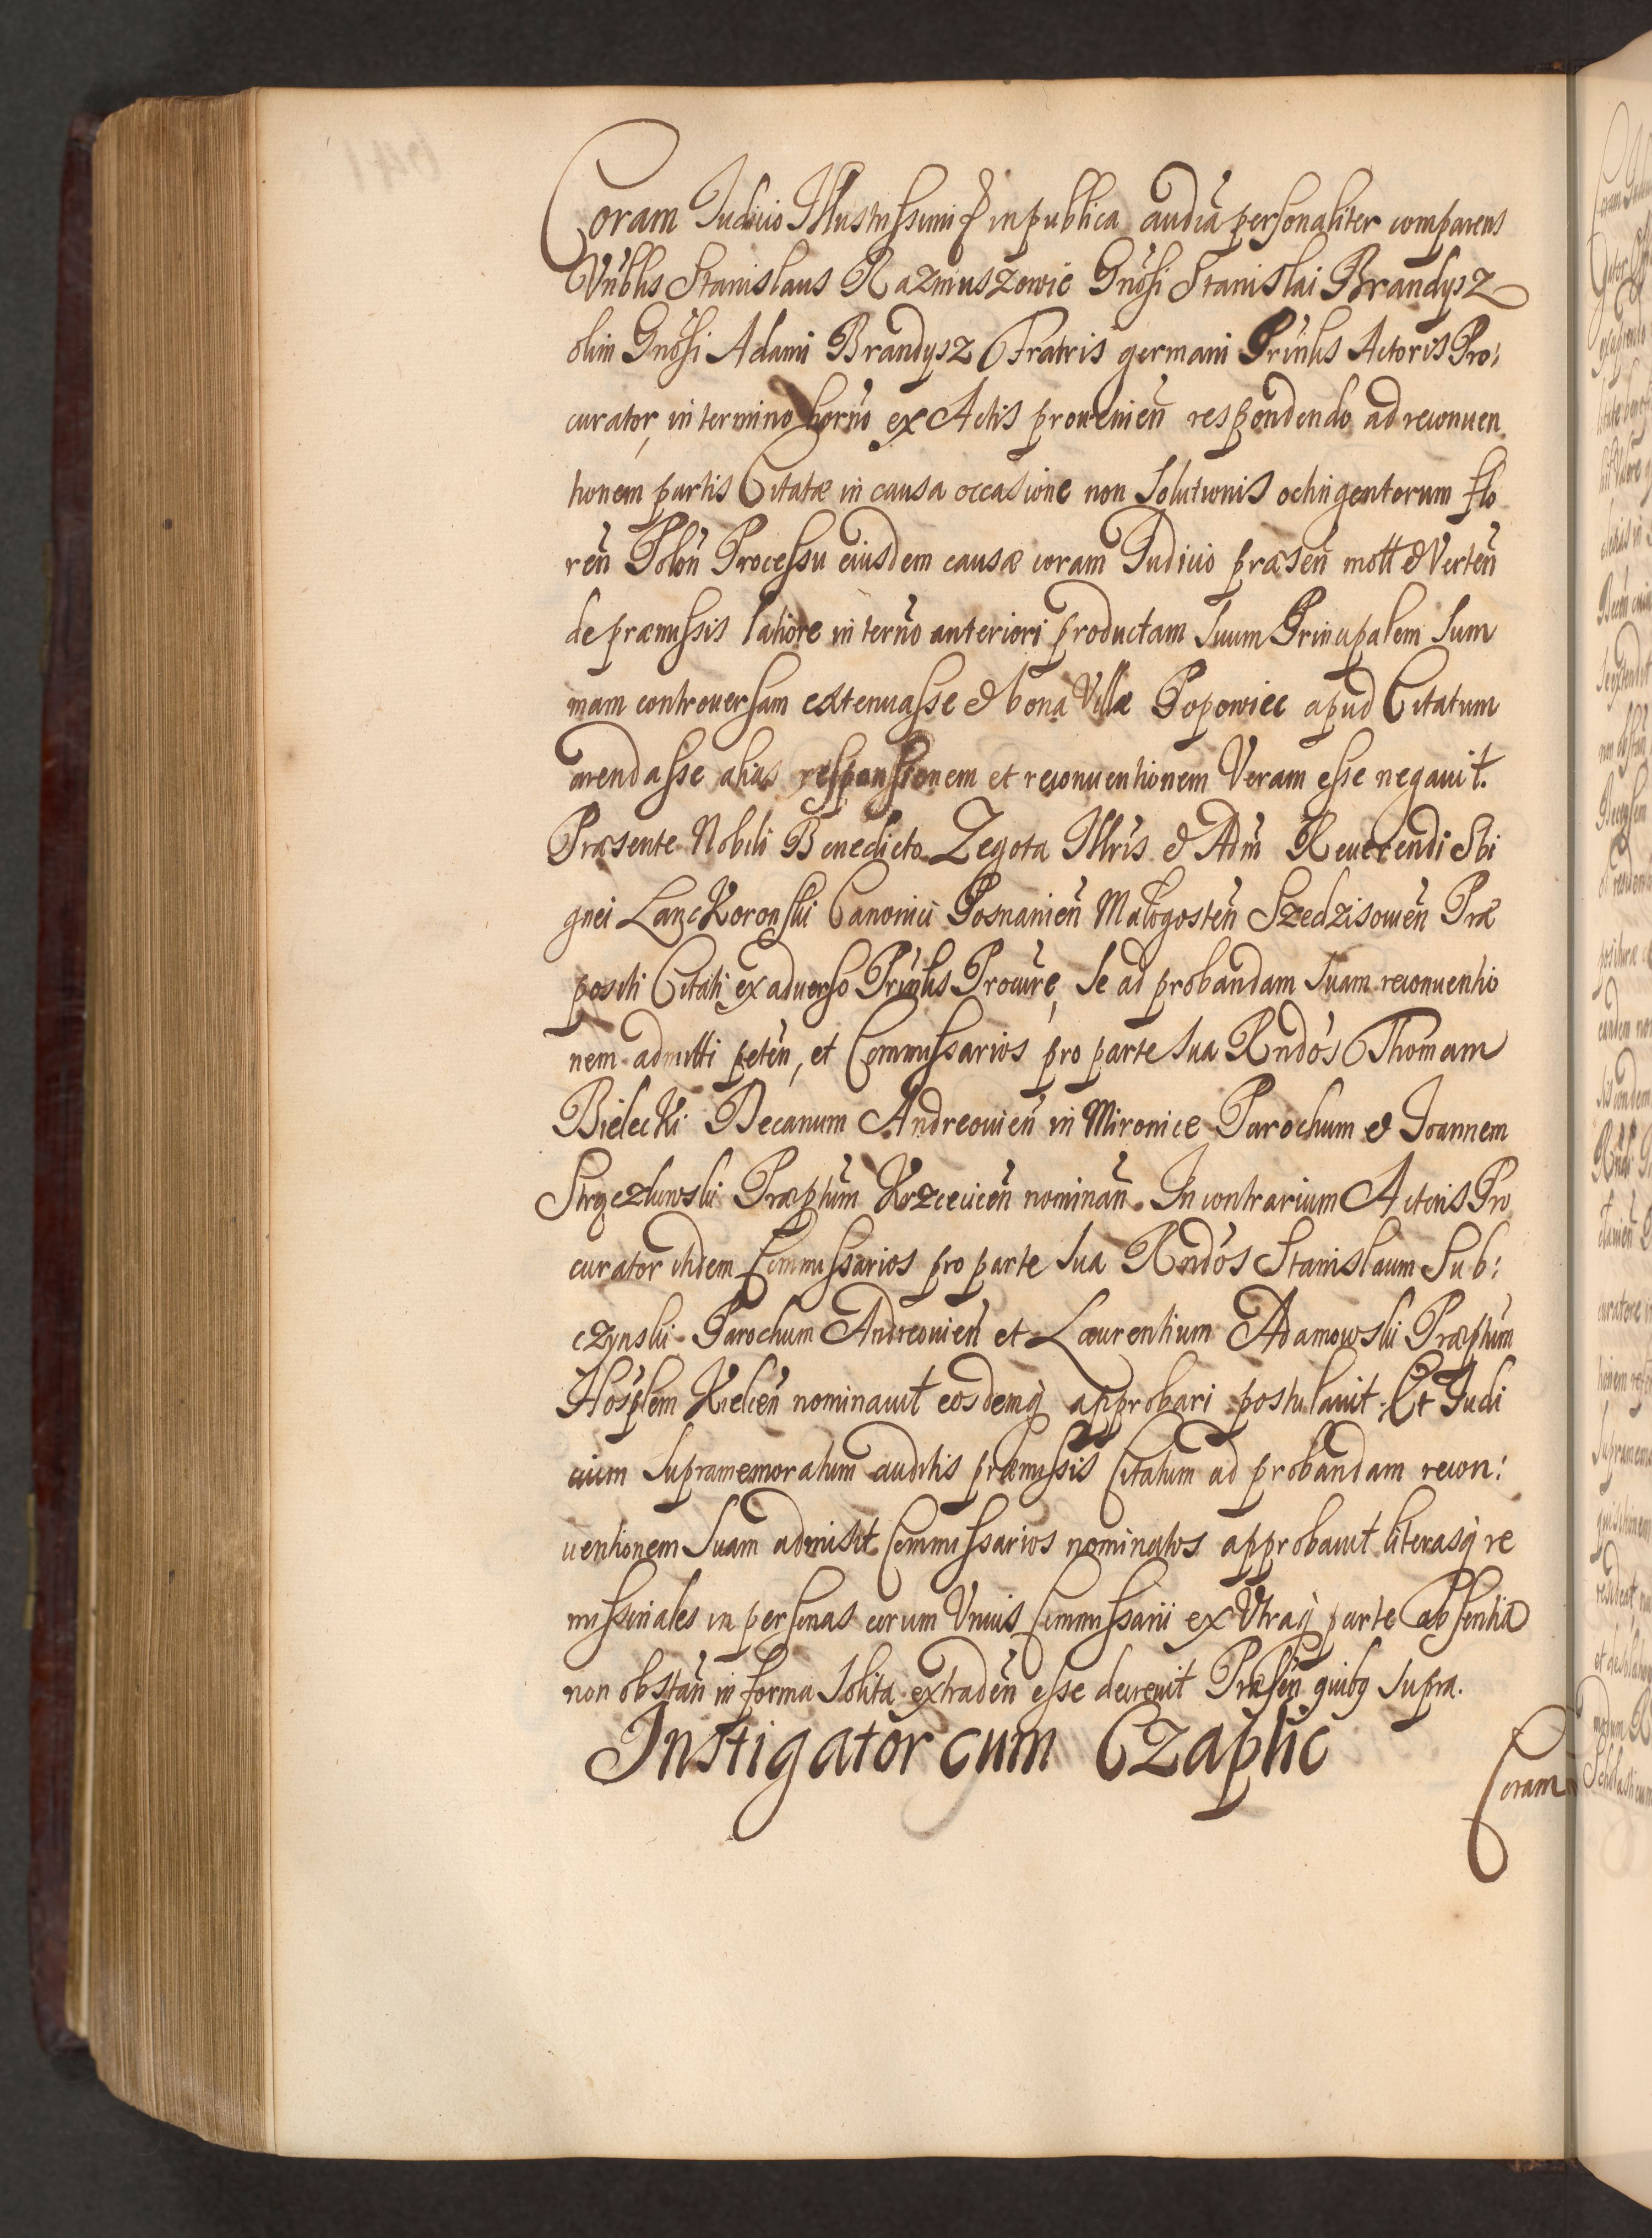 Coram Judicio Illustrissimi & in publica audia personaliter comparens
Vnblis Stanislaus Razmuszowic Gnosi Stanislai Brandysz
olim Gnosi Adami Brandysz Fratris germani Prinlis Actoris Pro:
curator, in termino horno ex Actis prouenien respondendo ad reconuen
tionem partis Citatæ in causa occasione non Solutionis octingentorum flo
ren Polon Processu eiusdem causæ coram Judicio præsen mott & Verten
de præmissis latiore in terno anteriori productam Suum Principalem Sum
mam controuersam extenuasse & bona Villæ Popowiec apud Citatum
arendasse alias responsionem et reconuentionem Veram esse negauit.
Præsente Nobili Benedicto Zegota Illris & Adm Reuerendi Sbi
gnei Lanckoronski Canonici Posnanien Małogosten Szedzisouien Præ
positi Citati ex aduerso Prinlis Procure, Se ad probandam Suam reconuentio
nem admitti peten, et Commissarios pro parte Sua Rndos Thomam
Bielecki Decanum Andreouien in Mironice Parochum & Joannem
Strzezkowski Præptum Krzecicen nominan. In contrarium Actoris Pro
curator itidem Commissarios pro parte Sua Rndos Stanislaum Sub:
czynski Parochum Andreouien et Laurentium Adamowski Præptum
Hosplem Kielcen nominauit eosdemq approbari postulauit. Et Judi
cium Supramemoratum auditis præmissis Citatum ad probandam recon:
uentionem Suam admisit Commissarios nominatos approbauit literasq re
missionales in personas eorum Vnius Commissarii ex Vtraq parte absentia
non obstan in forma Solita extraden esse decreuit Præsen quibq Supra.
Instigator cum Czaplic
Coram